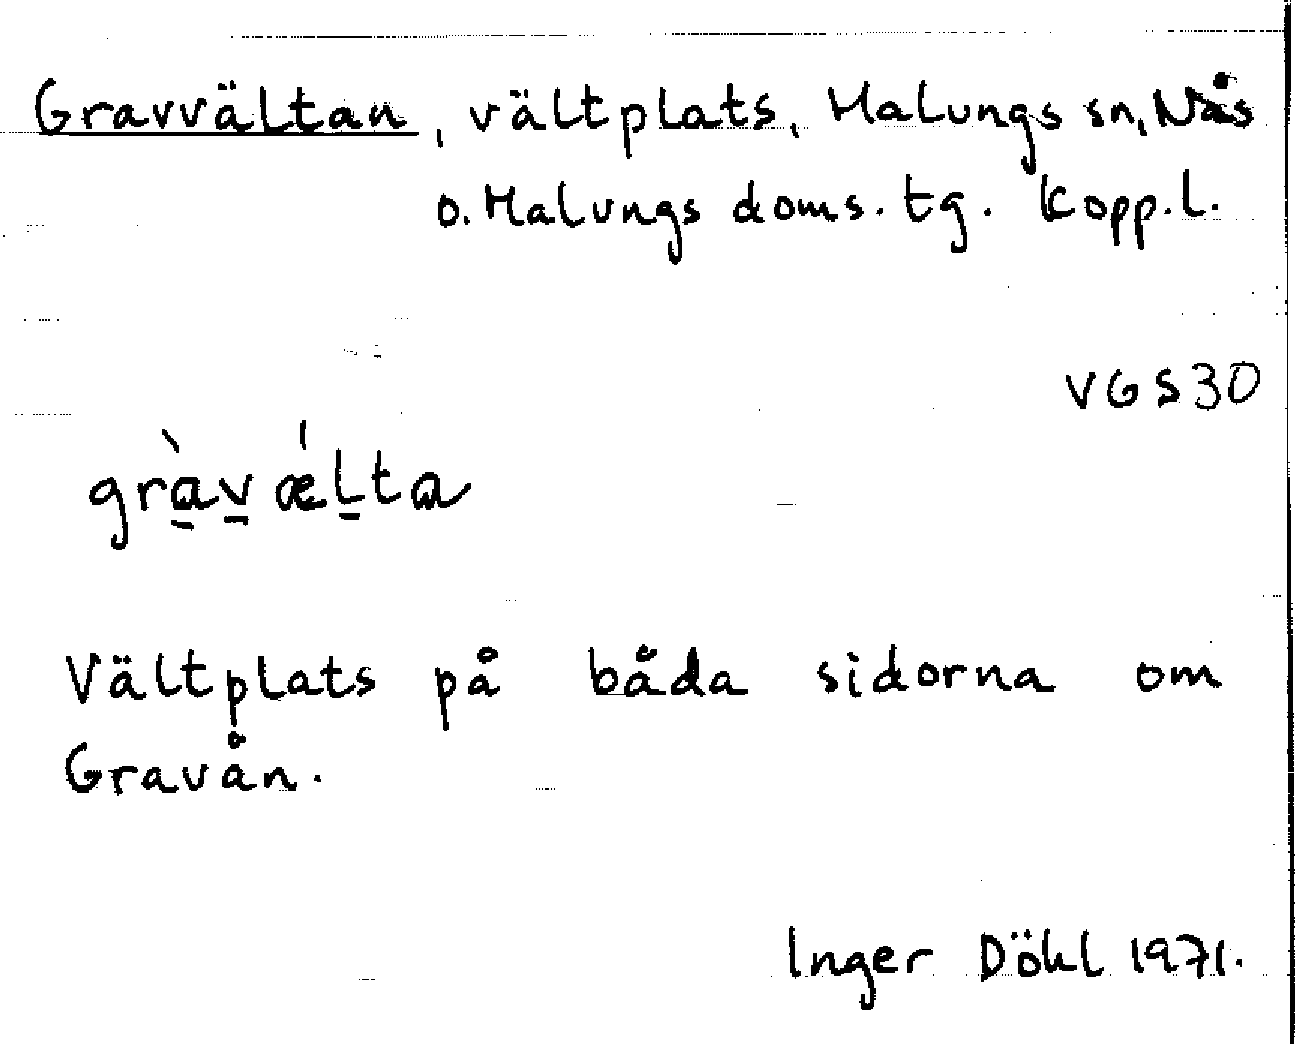 Gravvältan, vältplats, Malungs sn, Nås
o. Malungs doms. tg. Kopp. l.
VGS30
gràvǽlta
Vältplats på båda sidorna om
Gravån.
Inger Döhl 1971.